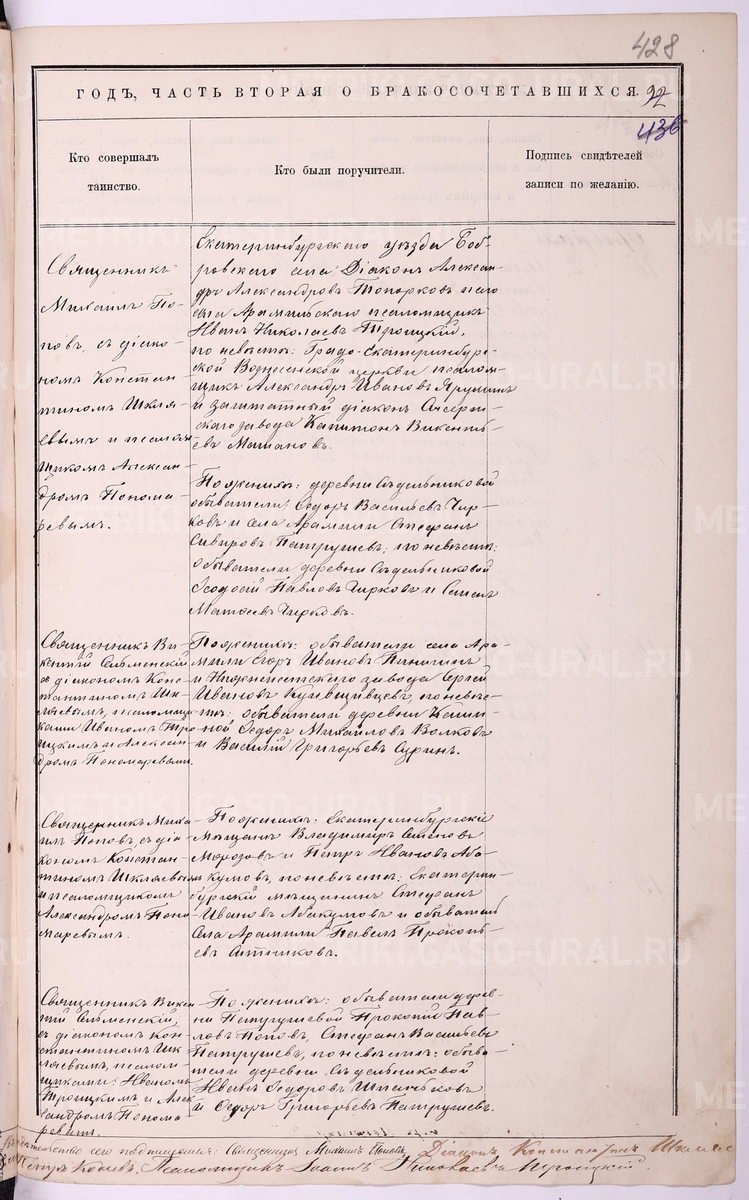 428
ГОДЪ, ЧАСТЬ ВТОРАЯ О БРАКОСОЧЕТАВШИХСЯ.
92
436
Кто совершалъ
таинство.
Кто были поручители.
Подпись свидѣтелей
записи по желанію.
Священникъ
Михаилъ По-
повъ, съ діако-
номъ Констан
тиномъ Шкля
евымъ и псалом
щикомъ Алексан
дромъ Понома-
ревымъ.
Екатеринбургскаго уѣзда Боб-
ровскаго села Діаконъ Алексан-
дръ Александровъ Топорковъ и того
села Арамильскаго псаломщикъ
Иванъ Николаевъ Троицкій,
по невѣстѣ: Градо-Екатеринбург-
ской Вознесенской церкви псалом-
щикъ Александръ Ивановъ
и заштатный діаконъ
скаго завода Капитонъ Викентьь-
евъ
По женихѣ: деревни Сѣдельниковой
обыватели: Ѳедоръ Васильевъ Чир-
ковъ и села Арамили Стефанъ
Патрушевъ, по невѣстѣ:
обыватели деревни Сѣдельниковой
Ѳеодосій Павловъ Чирковъ и
Матѳеевъ Чирковъ.
Священникъ Ви-
кентій
съ діакономъ Конс-
тантиномъ Шк-
ляевымъ, псаломщи-
ками Иваномъ Тро
ицкимъ и Алексан-
дромъ Пономаревыми.
По женихѣ: обыватели села Ара-
мили Егоръ Ивановъ
и Нижнеисетскаго завода Сергей
Ивановъ по невѣс-
тѣ: обыватели деревни
ной Ѳедоръ Михайловъ Волковъ
и Василій Григорьевъ Суринъ.
Священникъ Миха-
илъ Поповъ, съ діа-
кономъ Констан-
тиномъ Шкляевымъ
и псаломщикомъ
Александромъ Поно
маревымъ.
По женихѣ: Екатеринбургскій
мѣщанъ Владиміръ Семеновъ
Морозовъ и Петръ Ивановъ Аба-
кумовъ, по невѣстѣ: Екатерин-
бургскій мѣщанинъ Стефанъ
Ивановъ Абакумовъ и обыватель
села Арамили Павелъ Прокопь-
евъ Ситниковъ.
Священникъ Викен
тій
съ діакономъ Кон-
стантиномъ Шк-
ляевымъ, псалом-
щиками: Иваномъ
Троицкимъ и Алек
сандромъ Понома-
ревымъ.
По женихѣ: обыватели дерев-
ни Патрушевой Прокопій Пав-
ловъ Поповъ, Стефанъ Васильевъ
Патрушевъ, по невѣстѣ: обыва-
тели деревни Сѣдельниковой
Иванъ Ѳедоровъ
и Ѳедоръ Григорьевъ Патрушевъ.
Священникъ Михаилъ Поповъ, Діаконъ Константинъ Шкляев
Псаломщикъ Іоаннъ Николаевъ Троицкій
METRIKI.GASO-URAL.RU